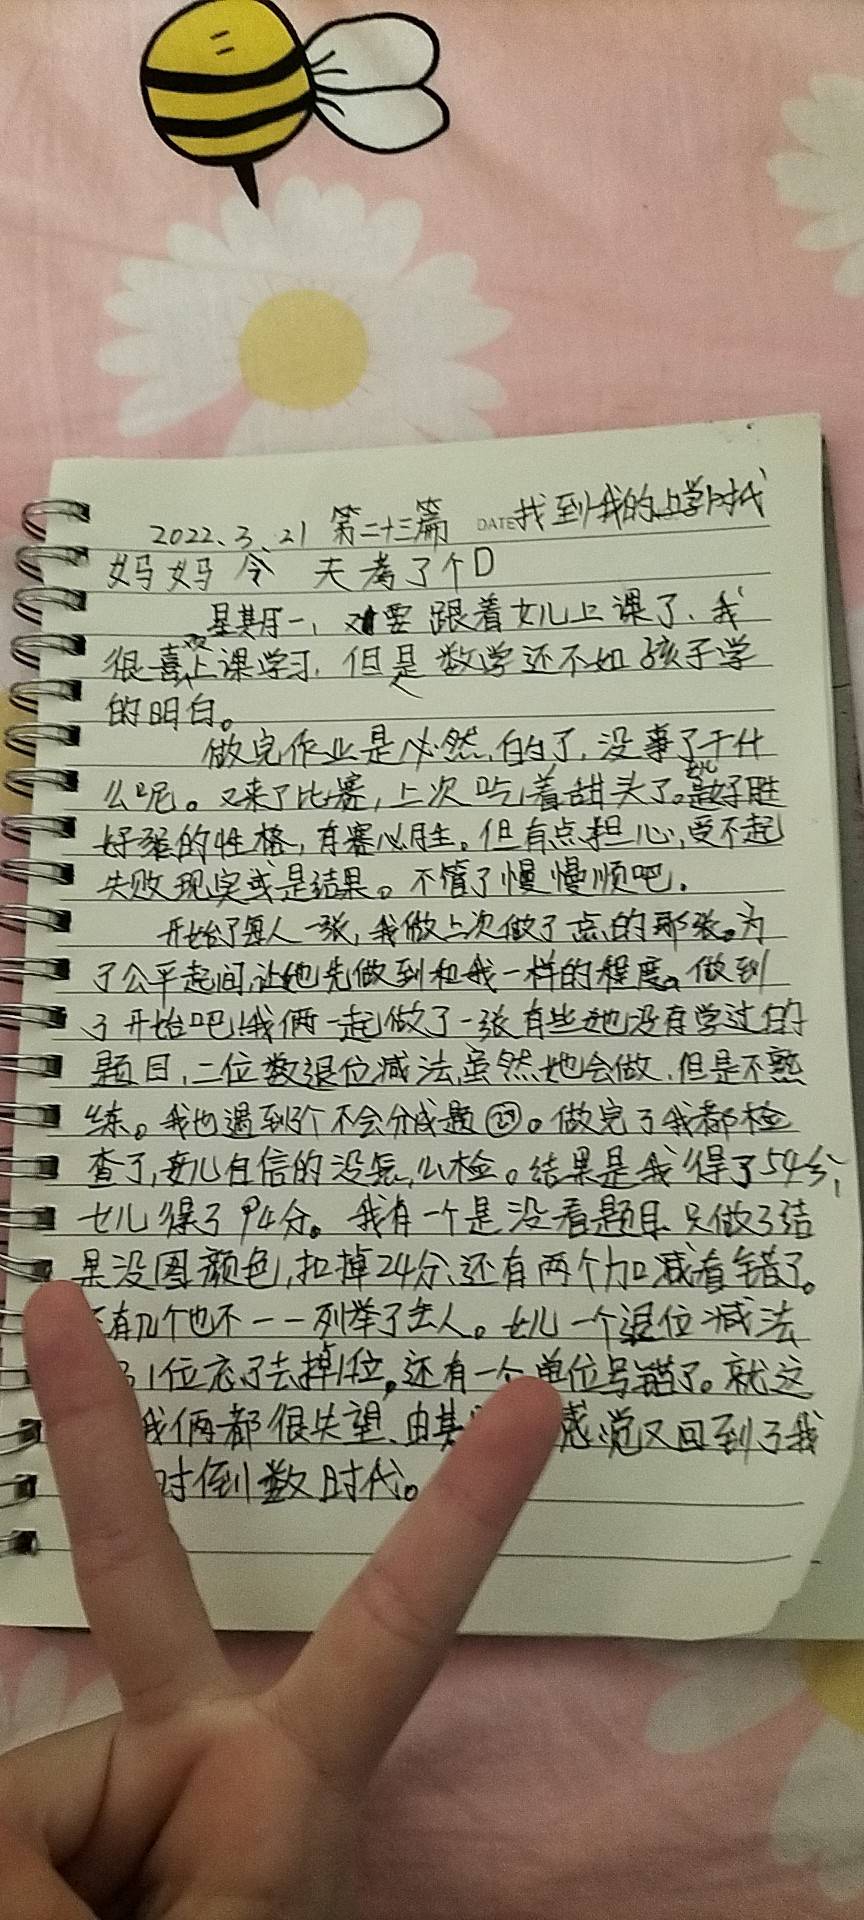 2022.3.21 第二十三篇 DATE 找到我的上学时代
妈妈今天考了个D
星期一,又要跟着女儿上课了.我
很喜欢上课学习.但是数学还不如孩子学
的明白。
做完作业是必然的了,没事了干什
么呢。又来了比赛,上次吃着甜头了。好胜
好强的性格,有赛必胜。但有点担心,受不起
失败现实或是结果。不管了慢慢顺吧.
开始了每人一张,我做上次做了点的那张。为
了公平起间,让她先做到和我一样的程度。做到
了开始吧!我俩一起做了一张有些她没有学过的
题目,二位数退位减法,虽然她会做.但是不熟
练。我也遇到个不会分成题。做完了我都检
查了,女儿自信的没怎么检。结果是我得了54分,
女儿得了94分。我有一个是没看题目只做了结
果没图颜色,扣掉24分、还有两个加减看错了。
有几个也不一一列举了丢人。女儿一个退位减法
1位忘了去掉1位。还有一个单位号错了。就这
我俩都很失望.由其 感觉又回到了我
时倒数时代。